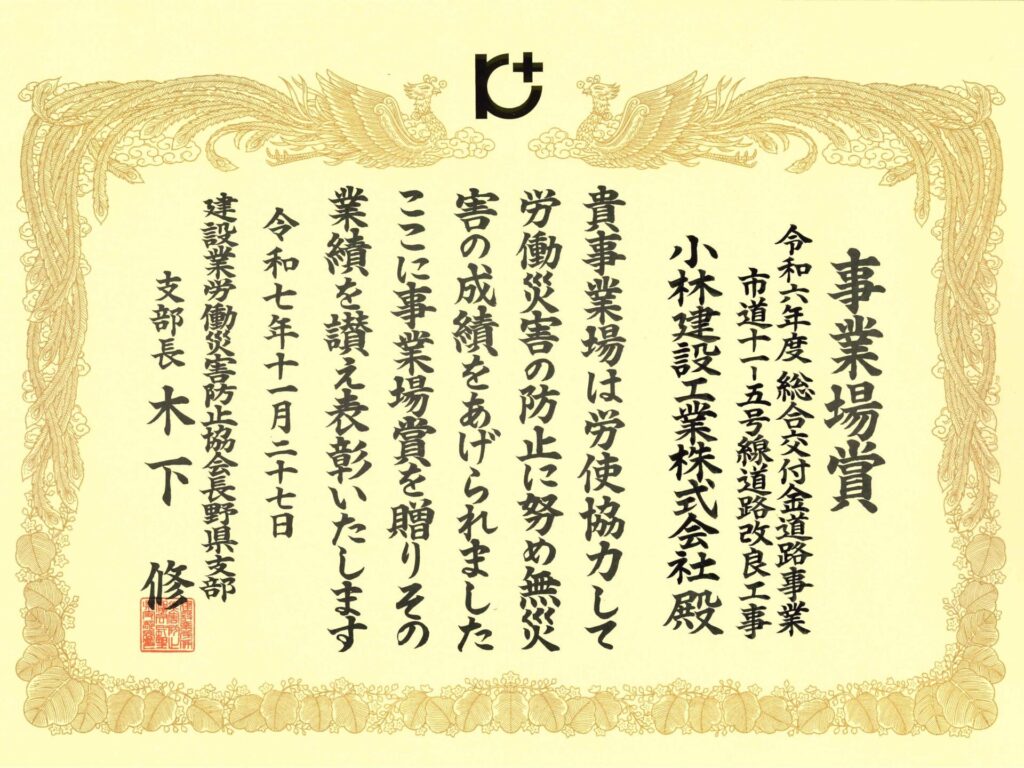 事業場賞
令和六年度 総合交付金道路事業
市道十一-五号線道路改良工事
小林建設工業株式会社殿
貴事業場は労使協力して
労働災害の防止に努め無災
害の成績をあげられました
ここに事業場賞を贈りその
業績を讃え表彰いたします
令和七年十一月二十七日
建設業労働災害防止協会長野県支部
支部長 木下 修